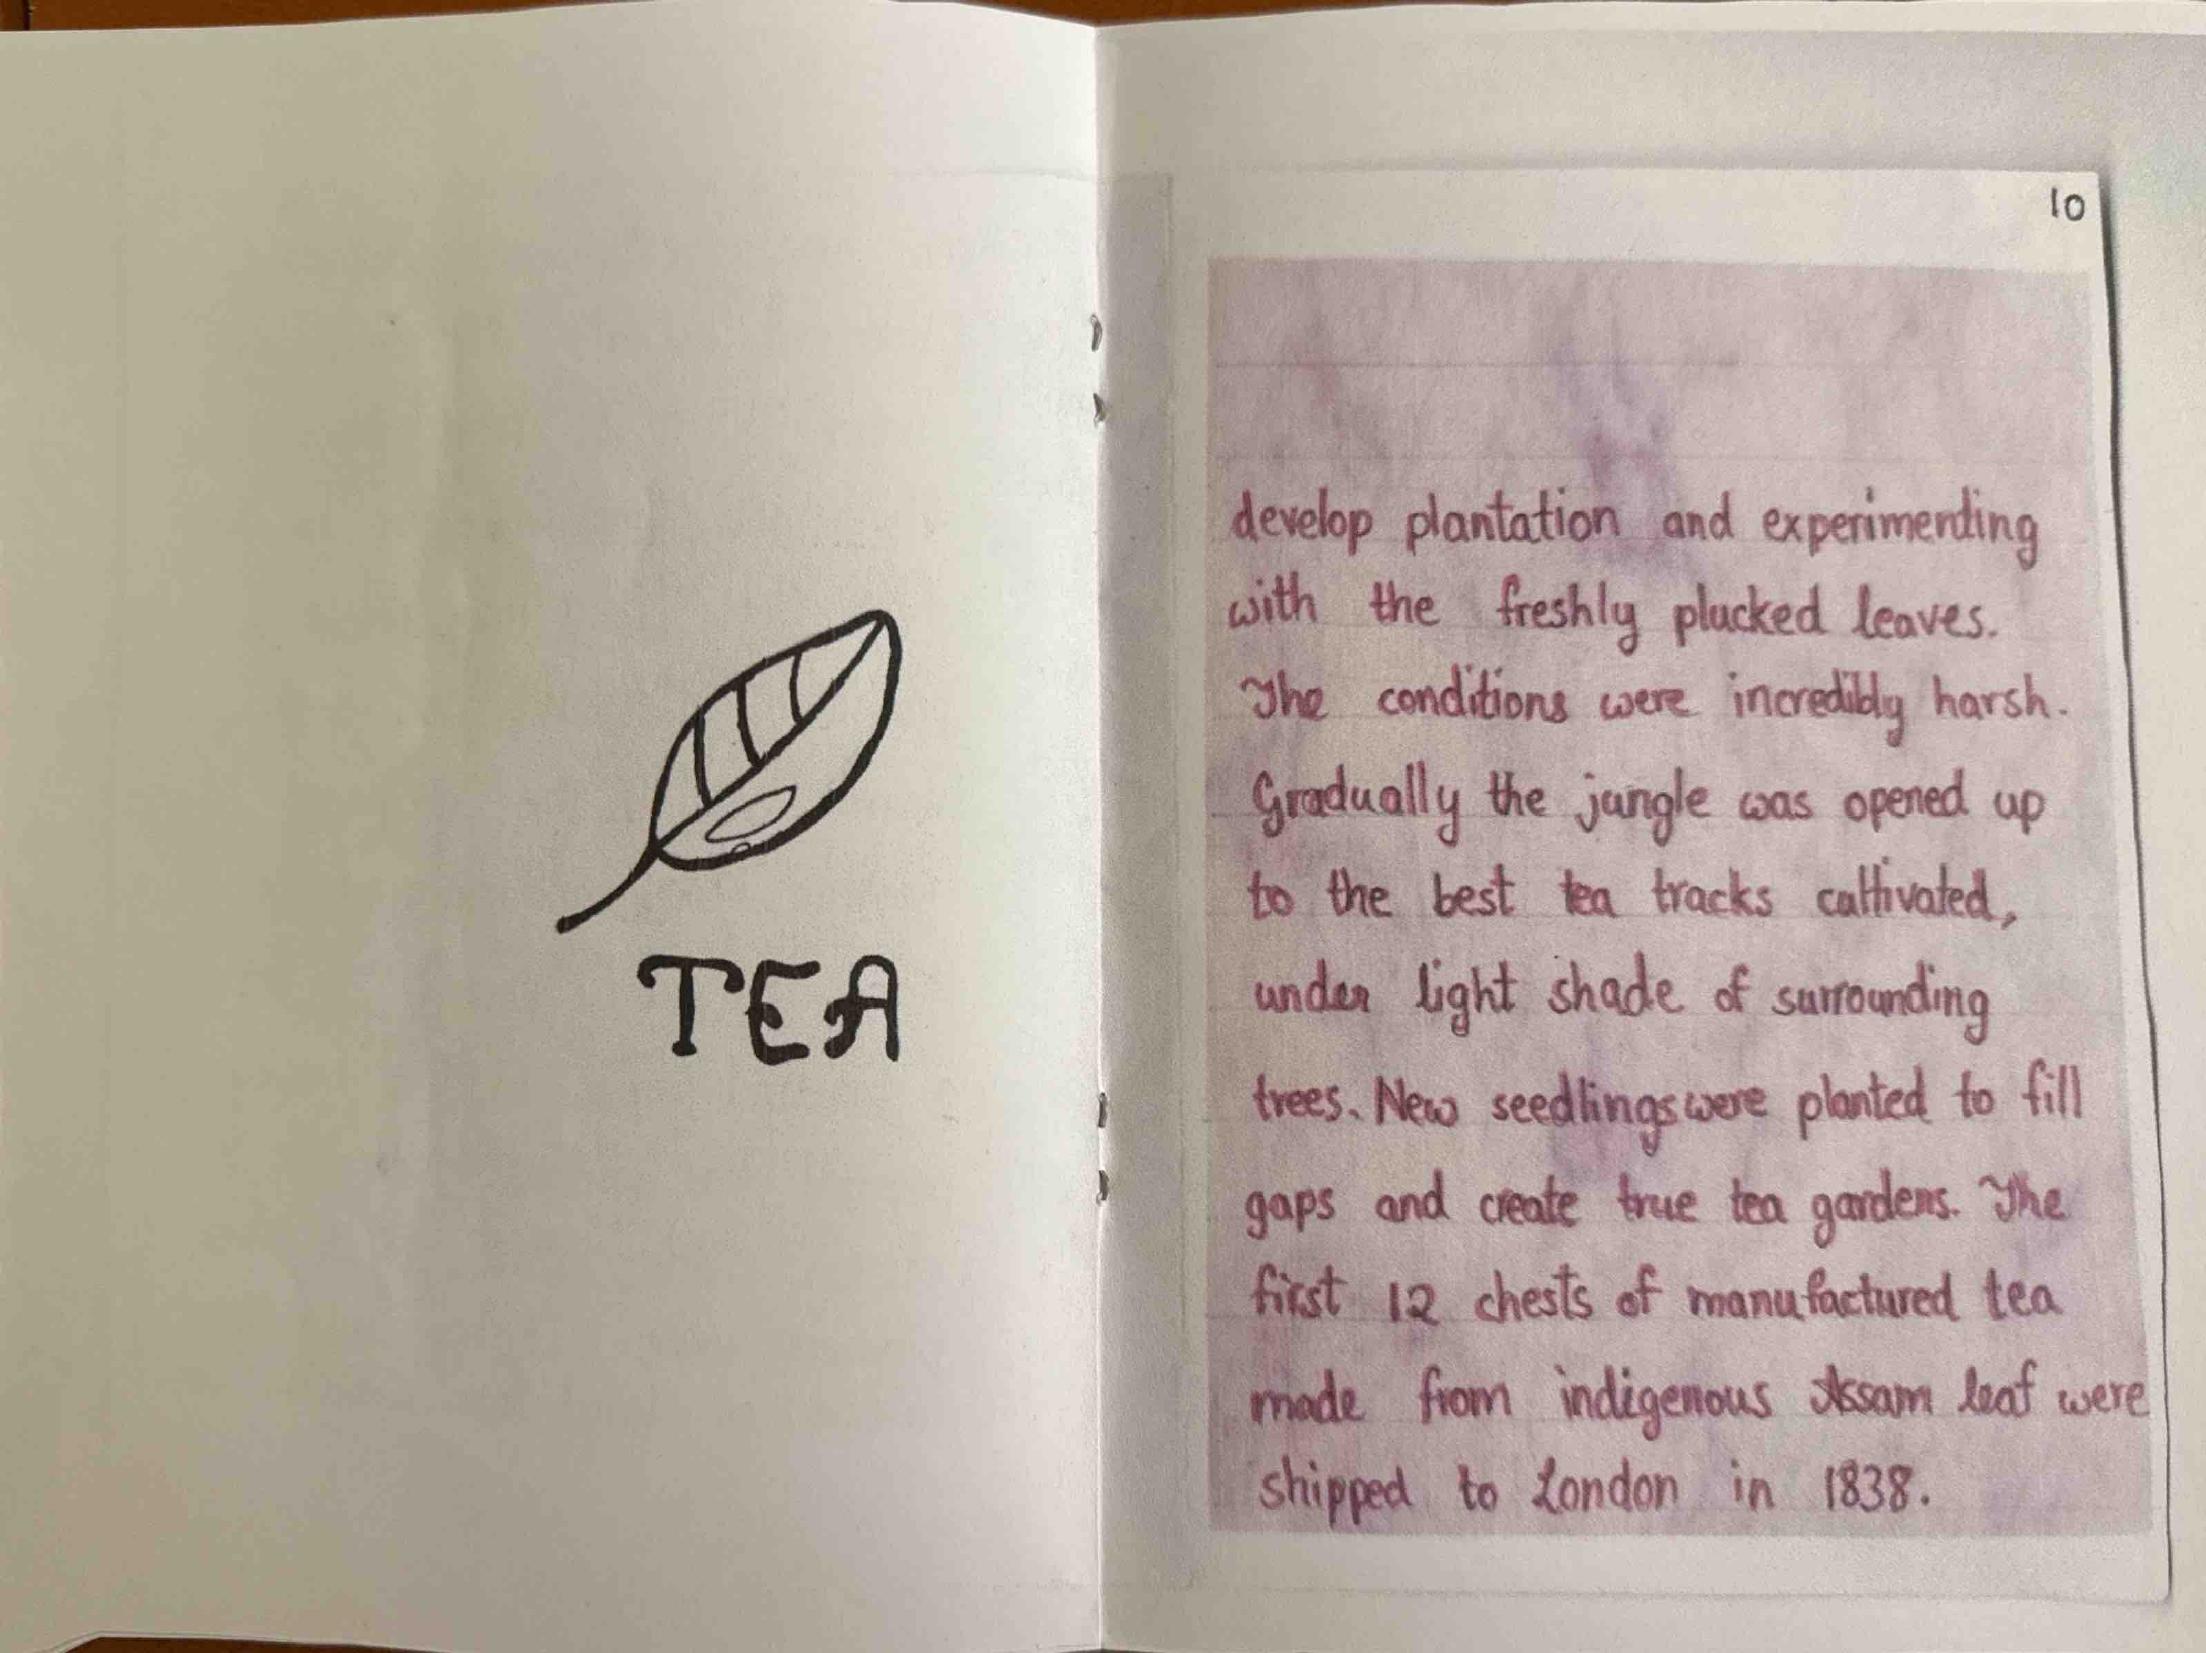 TEA
10
develop plantation and experimenting
with the freshly plucked leaves.
The conditions were incredibly harsh.
Gradually the jungle was opened up
to the best tea tracks cultivated,
under light shade of surrounding
trees. New seedlings were planted to fill
gaps and create true tea gardens. The
first 12 chests of manufactured tea
made from indigenous Assam leaf were
shipped to London in 1838.